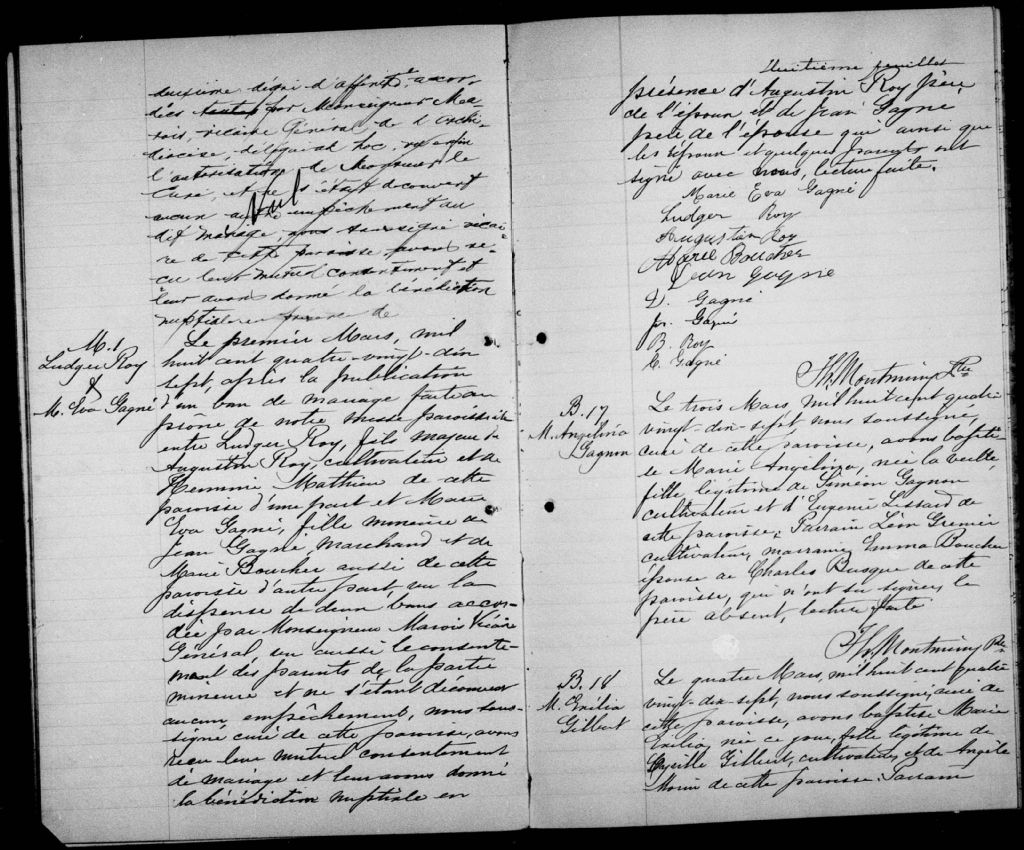 deuxième dégré d'affinité accor-
dées par Monseigneur Ma-
rois, vicaire Général de l'Archi-
diocèse, délégué ad hoc, vu enfin
l'autorisation de Monsieur le
Curé, et ne s'étant découvert
Nul
aucun autre empêchement au
dit mariage, nous soussigné vicai-
re de cette paroisse avons re-
çu leur mutuel consentement et
leur avons donné la bénédiction
nuptiale en présence de
M. 1
Ludger Roy
&
M. Eva Gagné
Le premier Mars, mil
huit cent quatre-vingt-dix
sept, après la publication
d'un ban de mariage faite au
prône de notre messe paroissiale
entre Ludger Roy, fils majeur de
Augustin Roy, cultivateur et de
Hemmie Mathieu de cette
paroisse d'une part et Marie
Eva Gagné, fille mineure de
Jean Gagné, marchand et de
Marie Boucher aussi de cette
paroisse d'autre part, vu la
dispense de deux bans accor-
dée par Monseigneur Marois Vicaire
Général, vu aussi le consente-
ment des parents de la partie
mineure et ne s'étant découvert
aucun empêchement, nous sous-
signé curé de cette paroisse, avons
reçu leur mutuel consentement
de mariage et leur avons donné
la bénédiction nuptiale en
Huitième feuillet
présence d'Augustin Roy père,
de l'époux et de Jean Gagné
père de l'épouse qui ainsi que
les époux et quelques parents ont
signé avec nous, lecture faite.
Marie Eva Gagné
Ludger Roy
Augustin Roy
Marie Boucher
Jean Gagne
Gagné
Gagné
B. Roy
Gagné
Th. Montminy Ptre
B. 17
M. Angélina
Gagnon
Le trois Mars, mil huit cent quatre
vingt-dix-sept nous soussigné,
curé de cette paroisse, avons baptis-
é Marie Angélina, née la veille,
fille légitime de Siméon Gagnon
cultivateur et d'Eugénie Lessard de
cette paroisse. Parrain Léon Grenier
cultivateur, marraine, Emma Boucher
épouse de Charles Busque de cette
paroisse, qui n'ont su signer, le
père absent, lecture faite
Th. Montminy Ptre
B. 18
M. Exilia
Gilbert
Le quatre Mars, mil huit cent quatre
vingt-dix-sept, nous soussigné, curé de
cette paroisse, avons baptisé Marie
Exilia, née ce jour, fille légitime de
Cyrille Gilbert, cultivateur et de Angèle
Morin de cette paroisse. Parrain